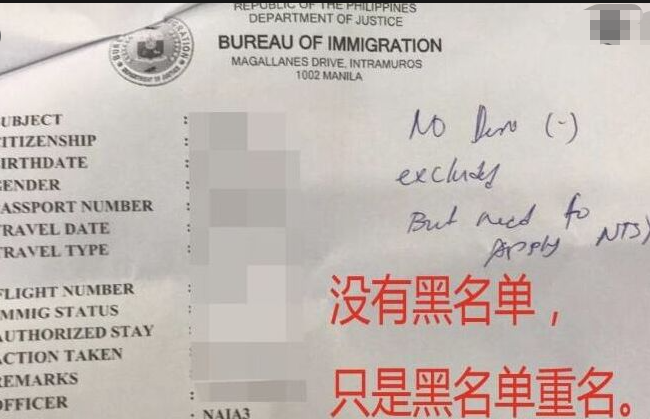 REPUBLIC OF THE PHILIPPINES
DEPARTMENT OF JUSTICE
BUREAU OF IMMIGRATION
MAGALLANES DRIVE, INTRAMUROS
1002 MANILA
UBJECT :
ITIZENSHIP :
IRTHDATE :
GENDER :
ASSPORT NUMBER :
RAVEL DATE :
RAVEL TYPE :
FLIGHT NUMBER :
MMIG STATUS :
AUTHORIZED STAY :
ACTION TAKEN :
REMARKS :
OFFICER : NAIA3
No (-)
But need to
Apply NTSP
没有黑名单，
只是黑名单重名。